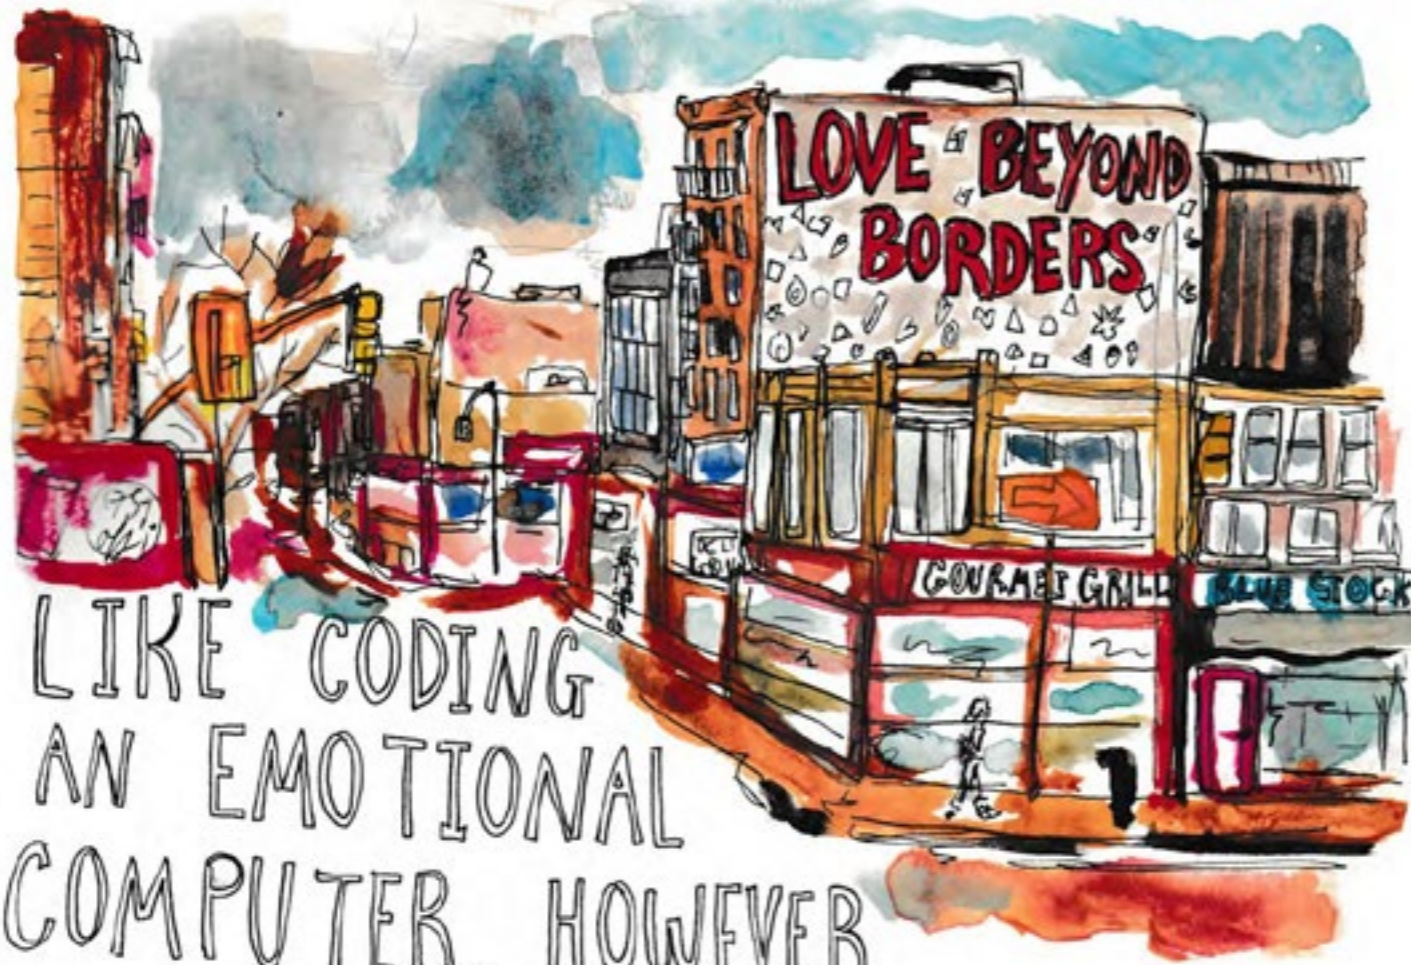 LOVE BEYOND
BORDERS
GOURMET GRILL
BLUE STOCK
LIKE CODING
AN EMOTIONAL
COMPUTER. HOWEVER